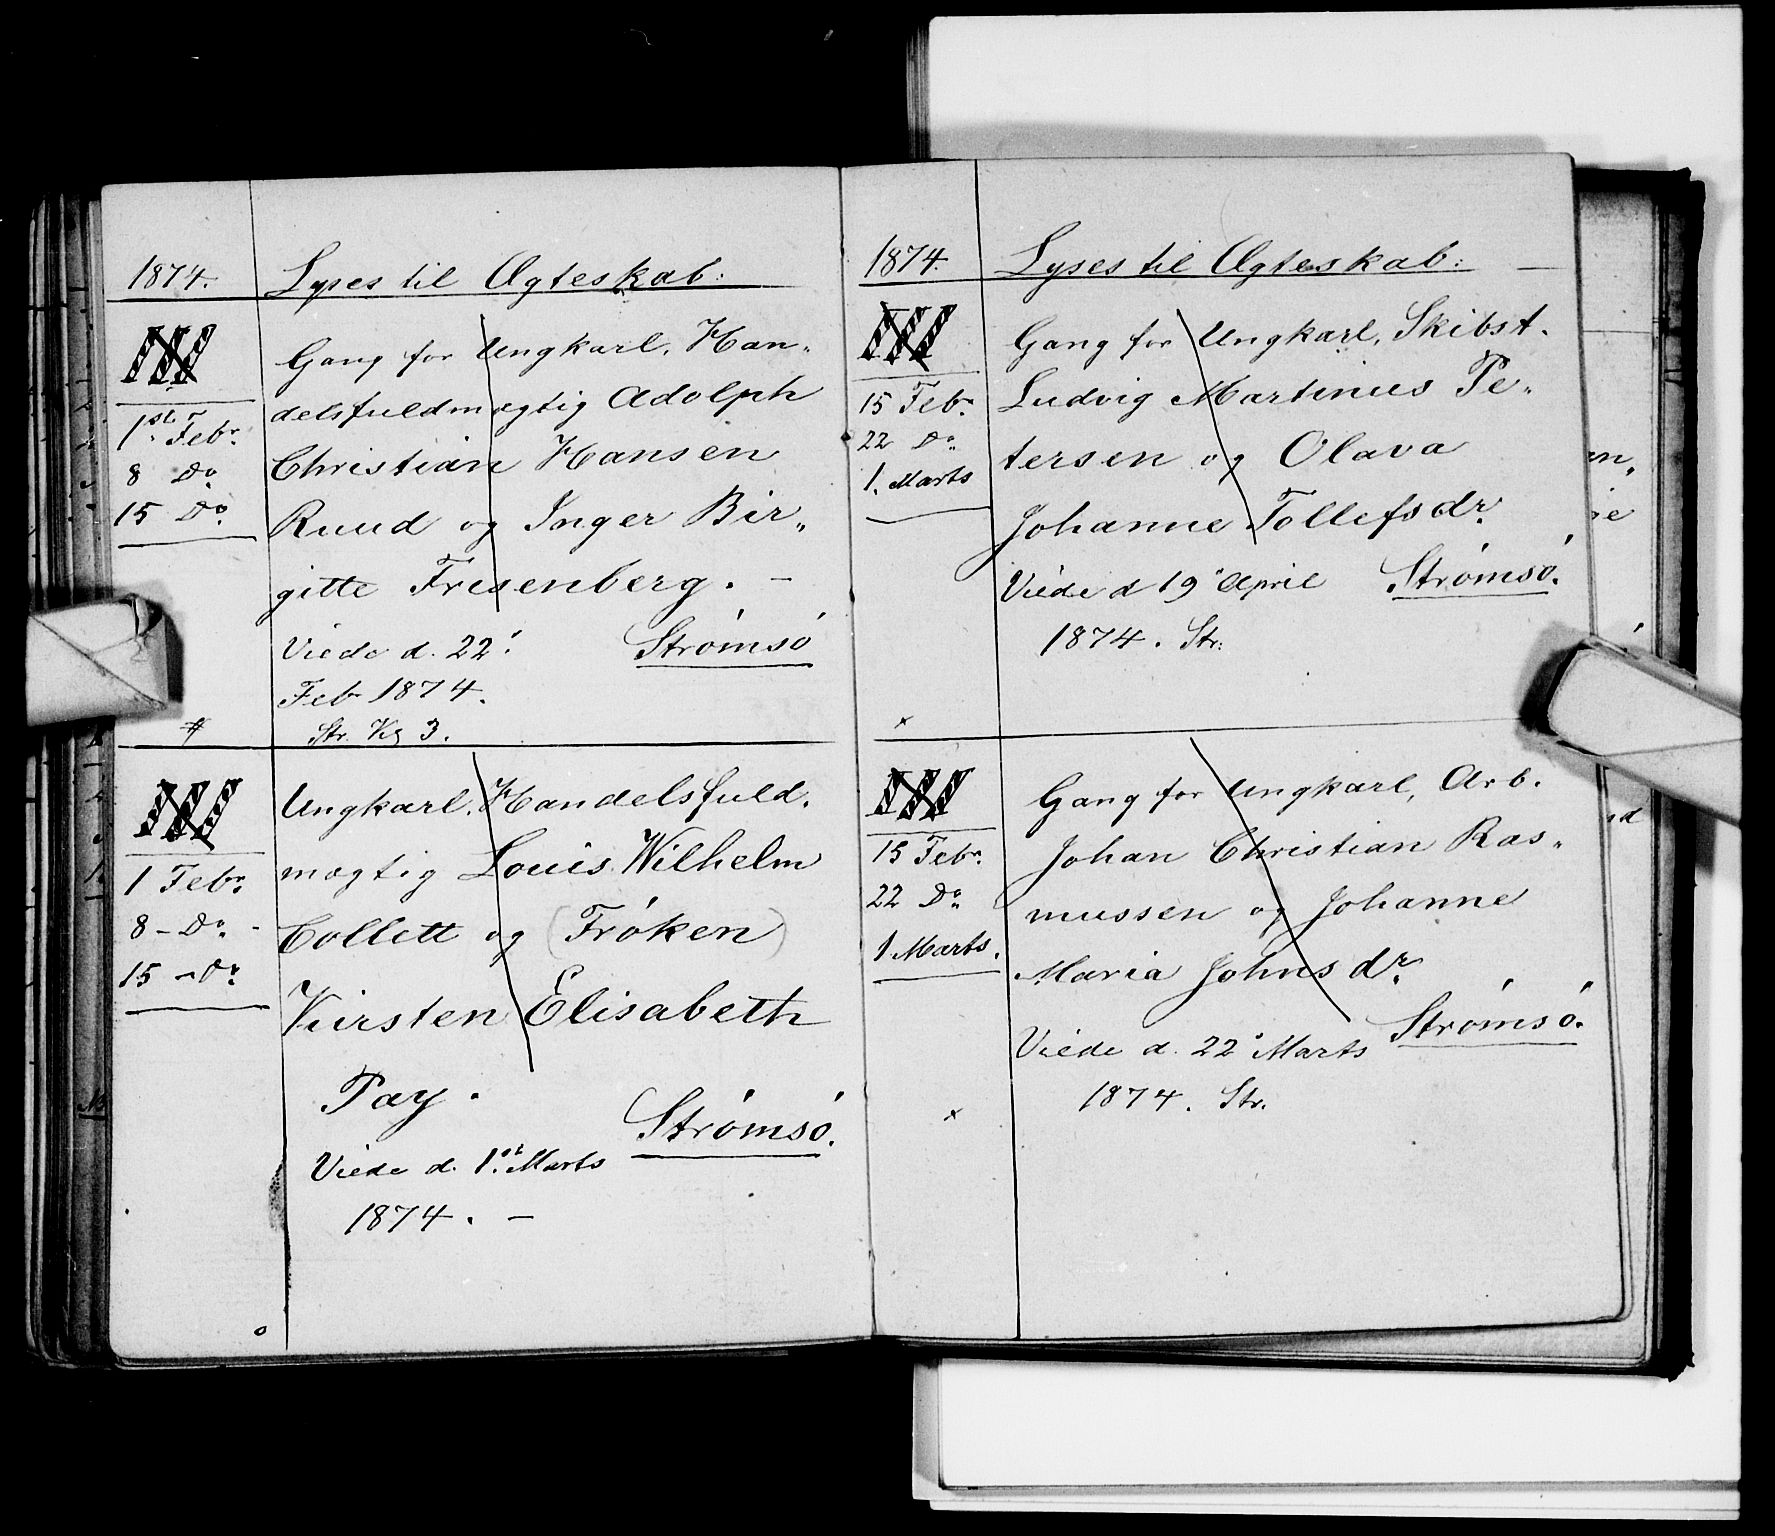 1874. Lyses til Ægteskab:
III Gang for Ungkarl. Han„
delsfuldmægtig Adolph
Christian Hansen
Ruud og Inger Bir„
gitte Fresenberg. –
1st Febr.
8 Do
15 Do.
Viede d. 22' Strømsø
Feb 1874.
Str. 3.
III Ungkarl. Handelsfuld.
mægtig Louis Wilhelm
Collett og (Frøken)
Kirsten Elisabeth
Pay.
1 Febr.
8 – Do. -
15 – Do.
Strømsø.
Viede d. 1st Marts
1874. –
1874. Lyses til Ægteskab: —
III Gang for Ungkarl, Skibst.
Ludvig Martinius Pe„
tersen og Olava
Johanne Tollefsdr.
15 Febr.
22 Do.
1. Marts
Viede d 19' April Strømsø.
1874. Str.
x
III Gang for Ungkarl, Arb.
Johan Christian Ras„
mussen og Johanne
Maria Johnsdr.
15 Febr.
22 Do.
1 Marts.
Viede d. 22' Marts Strømsø.
1874. Str.
x